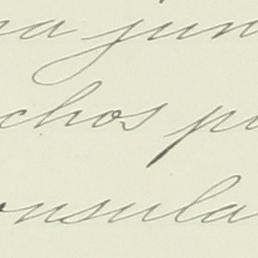 na jun
chos pu
onsula